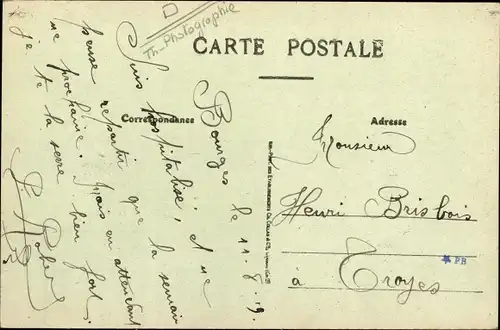 Th-Photographie
CARTE POSTALE
Correspondance
Adresse
Bourges le 11.8.19.
Suis hospitalisé, et ne
pense repartir que la semaine
prochaine. Mais en attendant
je te la serre bien fort.
Monsieur
Henri Brisbois
à Troyes
PB